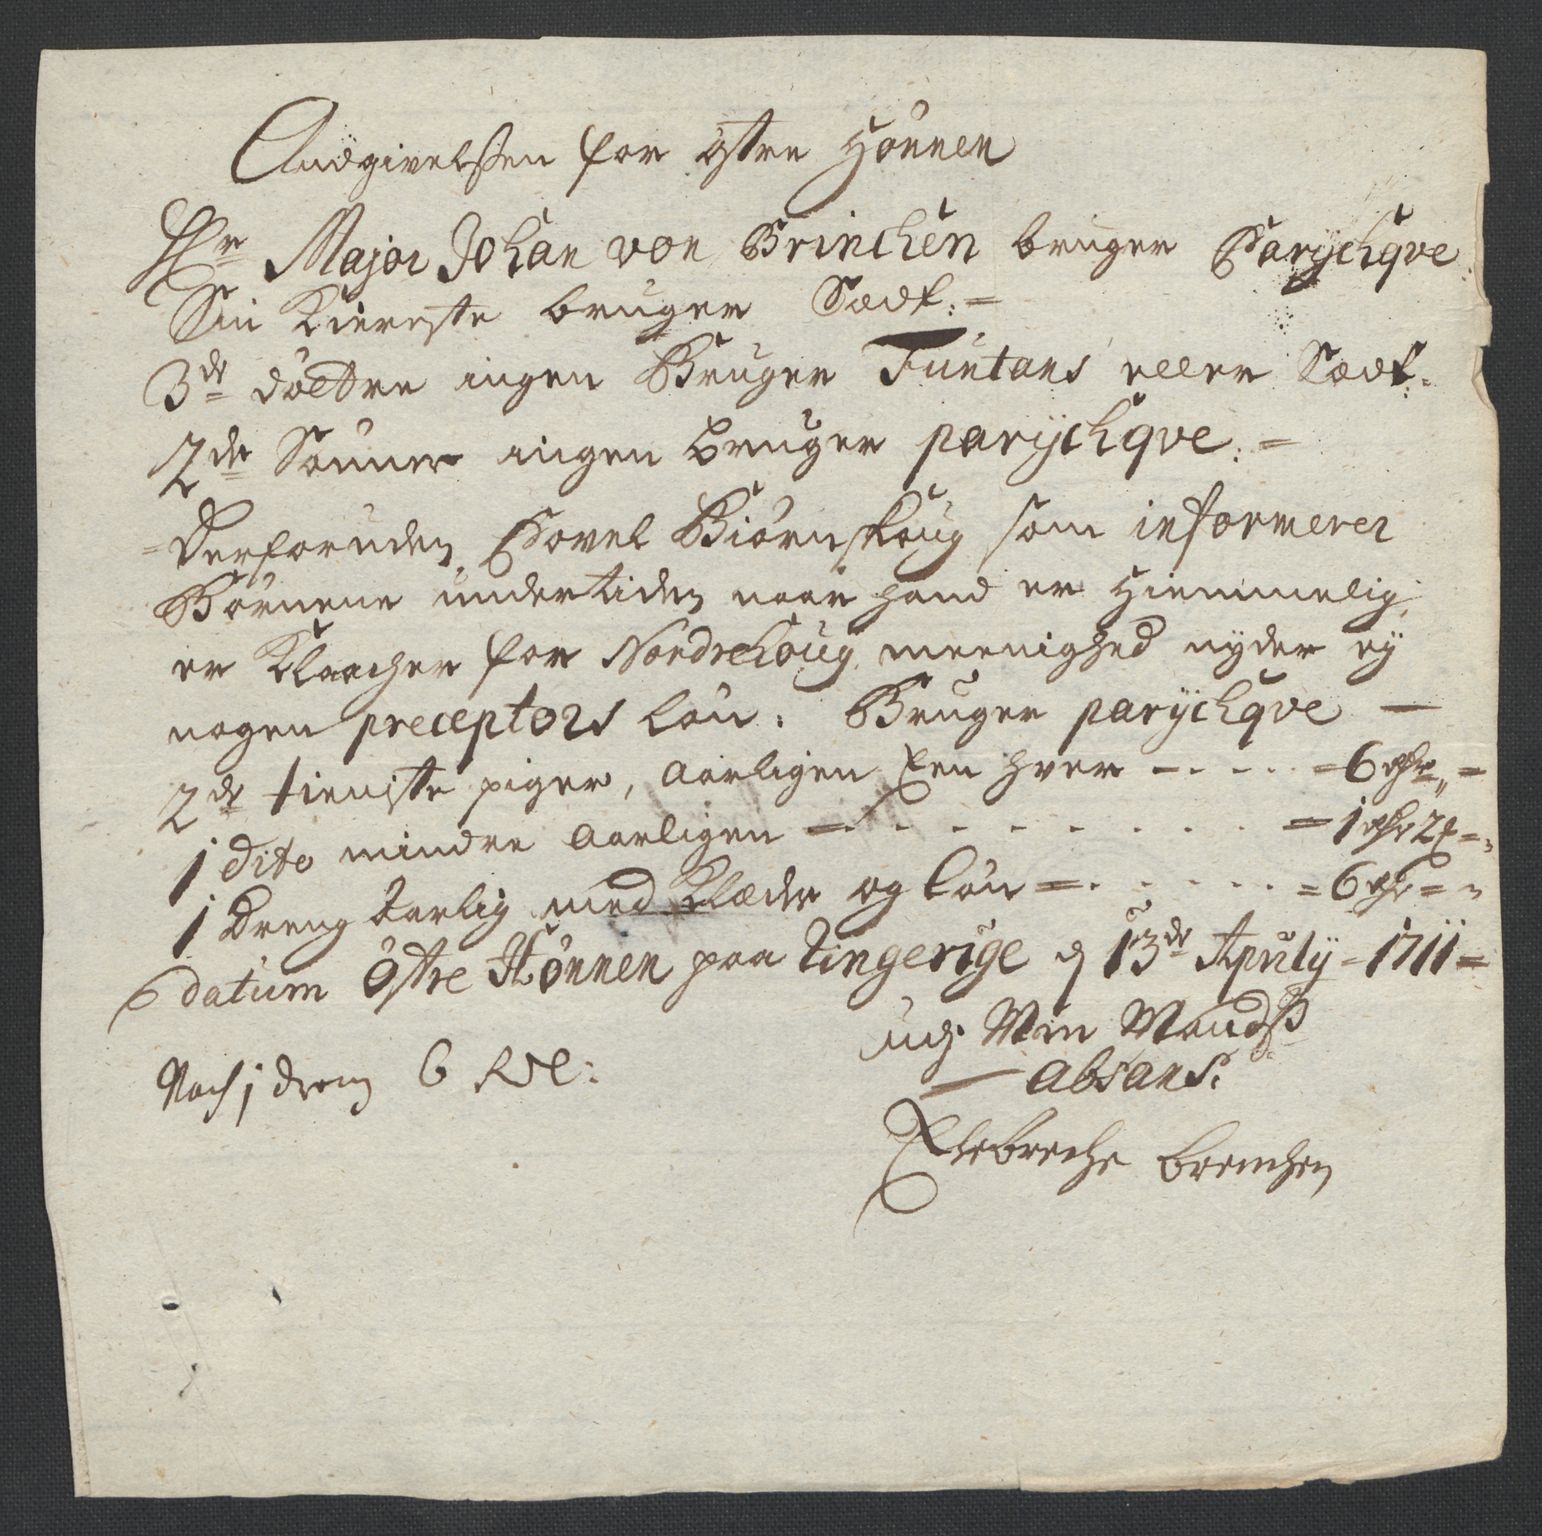 Andgivelsen for østre Hønnen
Hr Major Johan von Brinchen bruger Parÿchqve
Sin Kiereste bruger Sætt:=
3de døttre ingen Bruger Funtans eller Sætt.
2de Sønner ingen bruger parÿchqve:=
=Derforuden Povel Biørnskoug som informerer
Børnene undertiden naar hand er Hiemmelig,
er Klocher for Nordrehoug meenighed nyder eÿ
nogen preceptors løn. Bruger parÿchqve —
2de tieniste piger, aarligen Een hver - . - . . =6 rdr„=
1 dito mindre aarligen =. . - . - . . . =1 rdr 2 =„
1 Dreng Aarlig med Klæder og løn =. . - . . . =6 rdr =„
datum Østre Hønnen paa Ringerige d 13de Aprily - 1711=
udj Min Mands
— absans:
Brinchen
Noch 1 dreng 6